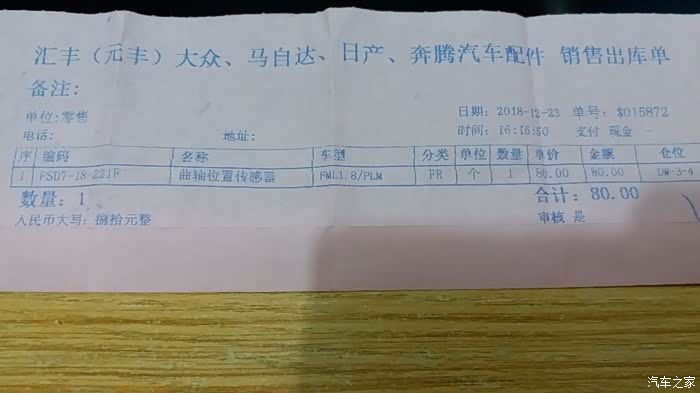 汇丰（元丰）大众、马自达、日产、奔腾汽车配件 销售出库单
备注:
单位:零售 日期: 2018-12-23 单号: S015872
电话: 地址: 时间: 16:16:50 支付 现金 -
序 编码 名称 车型 分类 单位 数量 单价 金额 仓位
1 FSD7-18-221F 曲轴位置传感器 FML1.8/PLM FR 个 1 80.00 80.00 DW-3-4
数量: 1 合计: 80.00
人民币大写: 捌拾元整 审核 是
汽车之家